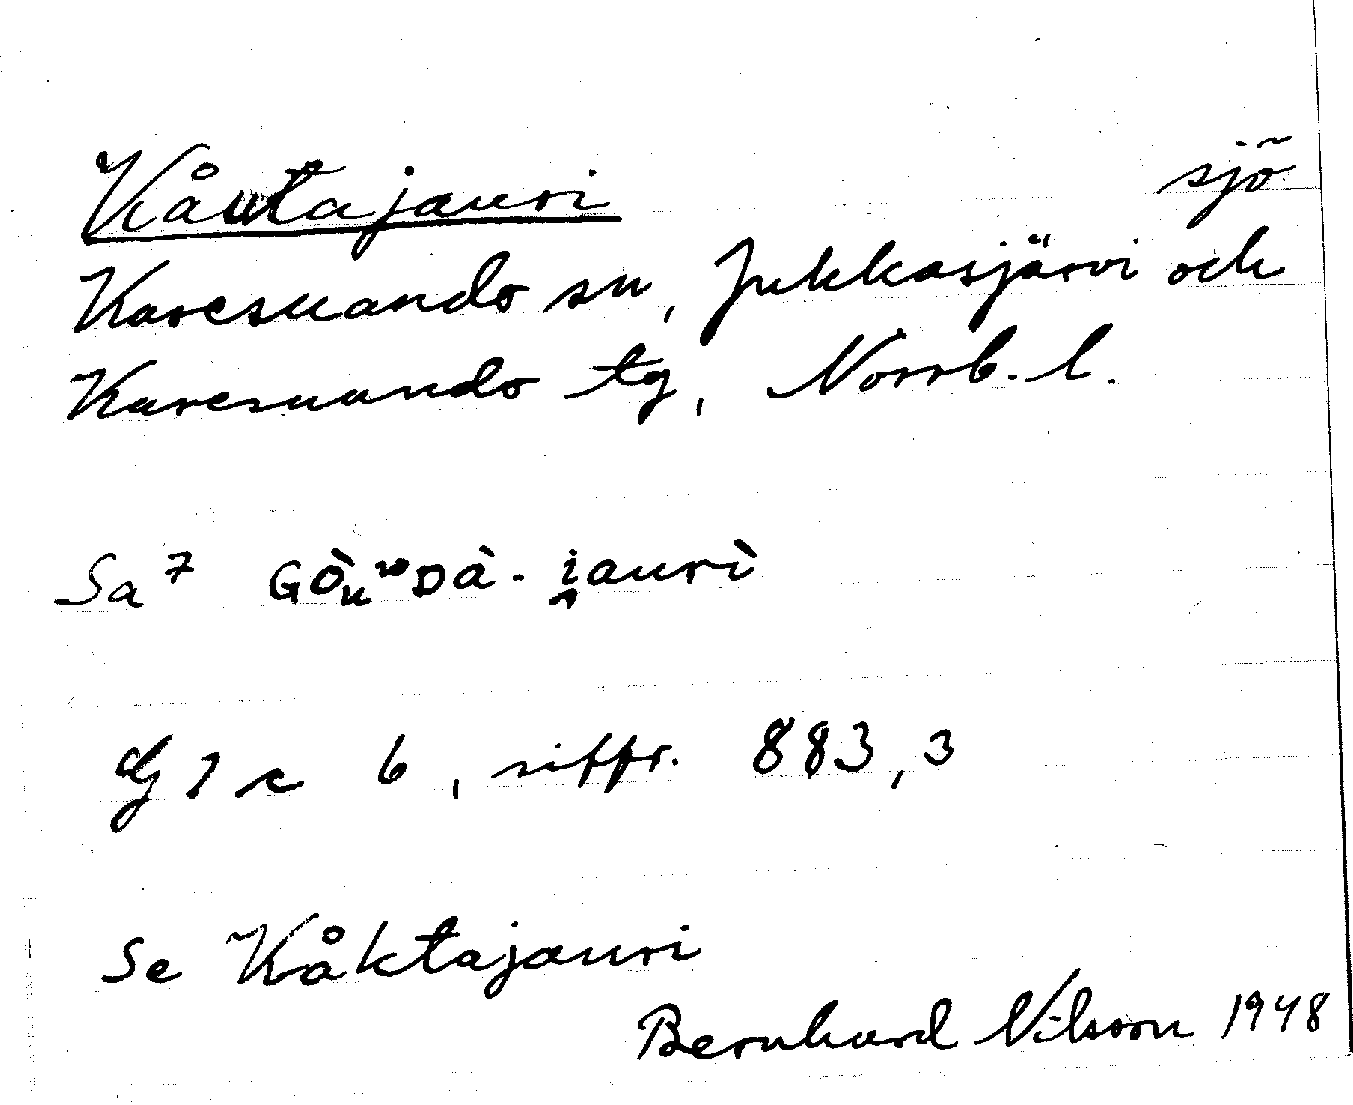 Kåutajauri sjö
Karesuando sn, Jukkasjärvi och
Karesuando tg, Norrb. l.
Sa 7 GÒ̀uʷDà-i̯aurì
siffr. 883,3
Se Kåktajauri
Bernhard Nilsson 1948